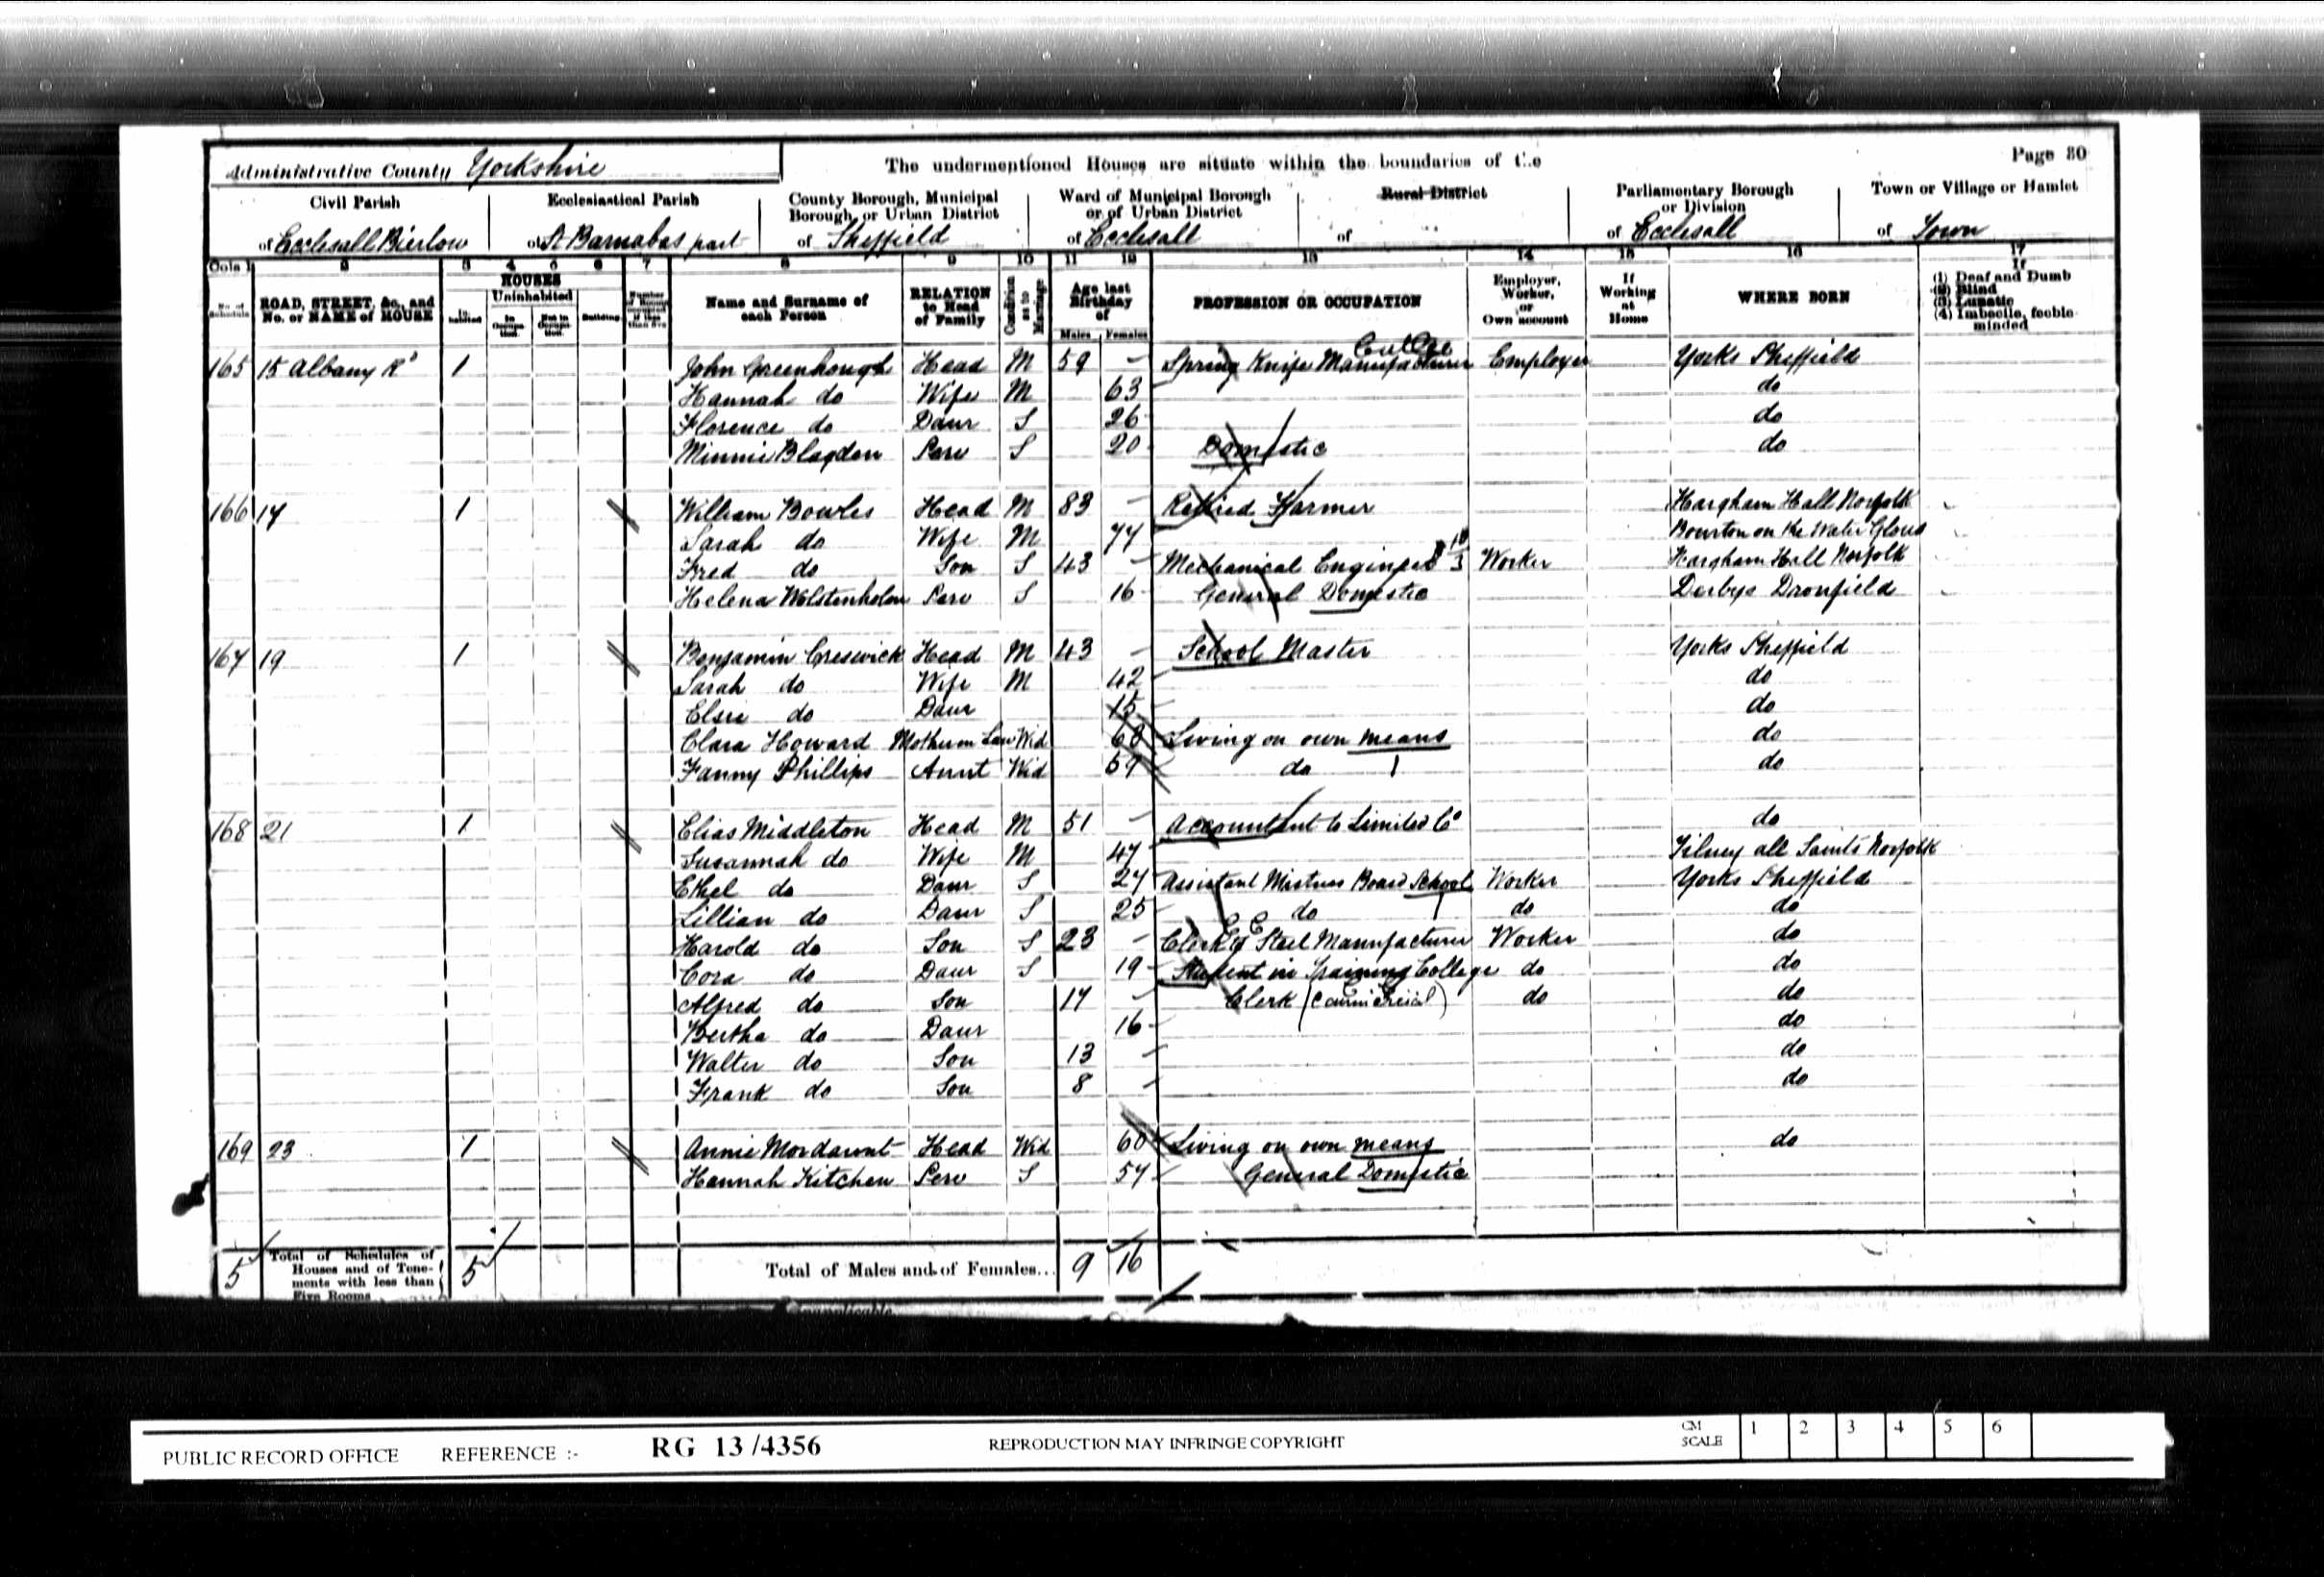 Administrative County Yorkshire
The undermentioned Houses are situate within the boundaries of the
Page 30
Civil Parish
of Ecclesall Bierlow
Ecclesiastical Parish
of St Barnabas part
County Borough, Municipal
Borough, or Urban District
of Sheffield
Ward of Municipal Borough
or of Urban District
of Ecclesall
Rural District
of
Parliamentary Borough
or Division
of Ecclesall
Town or Village or Hamlet
of Town
Cols 1 2 3 4 5 6 7 8 9 10 11 12 13 14 15 16 17
No. of Schedule
ROAD, STREET, &c., and
No. or NAME of HOUSE
HOUSES
In-habited
Uninhabited
In Occupa-tion.
Not in Occupa-tion.
Building
Number of Rooms occupied if less than five
Name and Surname of
each Person
RELATION
to Head
of Family
Condition as to Marriage
Age last
Birthday
of
Males Females
PROFESSION OR OCCUPATION
Employer,
Worker,
or
Own account
If
Working
at
Home
WHERE BORN
If
(1) Deaf and Dumb
(2) Blind
(3) Lunatic
(4) Imbecile, feeble-
minded
165 15 Albany Rd 1 John Greenhough Head M 59 – Spring Knife Manufacturer Employer Yorks Sheffield
Hannah do Wife M 63 do
Florence do Daur S 26 do
Minnie Blagden Serv S 20 Domestic do
166 17 1 William Bowles Head M 83 – Retired Farmer Hargham Hall Norfolk
Sarah do Wife M 77 Bourton on the Water Glous
Fred do Son S 43 – Mechanical Engineer Worker Hargham Hall Norfolk
Helena Wolstenholm Serv S 16 General Domestic Derbys Dronfield
167 19 1 Benjamin Creswick Head M 43 – School Master Yorks Sheffield
Sarah do Wife M 42 do
Elsie do Daur 15 do
Clara Howard Mother in Law Wid 68 Living on own means do
Fanny Phillips Aunt Wid 59 do do
168 21 1 Elias Middleton Head M 51 – Accountant to Limited Co do
Susannah do Wife M 47 Tilney all Saints Norfolk
Ethel do Daur S 27 Assistant Mistress Board School Worker Yorks Sheffield
Lillian do Daur S 25 do do do
Harold do Son S 23 – Clerk Steel Manufacturer Worker do
Cora do Daur S 19 Student in Training College do do
Alfred do Son 17 – Clerk (Commercial) do do
Bertha do Daur 16 do
Walter do Son 13 do
Frank do Son 8 do
169 23 1 Annie Mordaunt Head Wid 60 Living on own means do
Hannah Kitchen Serv S 57 General Domestic
5
Total of Schedules of
Houses and of Tene-
ments with less than
Five Rooms
5
Total of Males and of Females...
9 16
PUBLIC RECORD OFFICE REFERENCE :- RG 13/4356 REPRODUCTION MAY INFRINGE COPYRIGHT
CM
SCALE
1 2 3 4 5 6